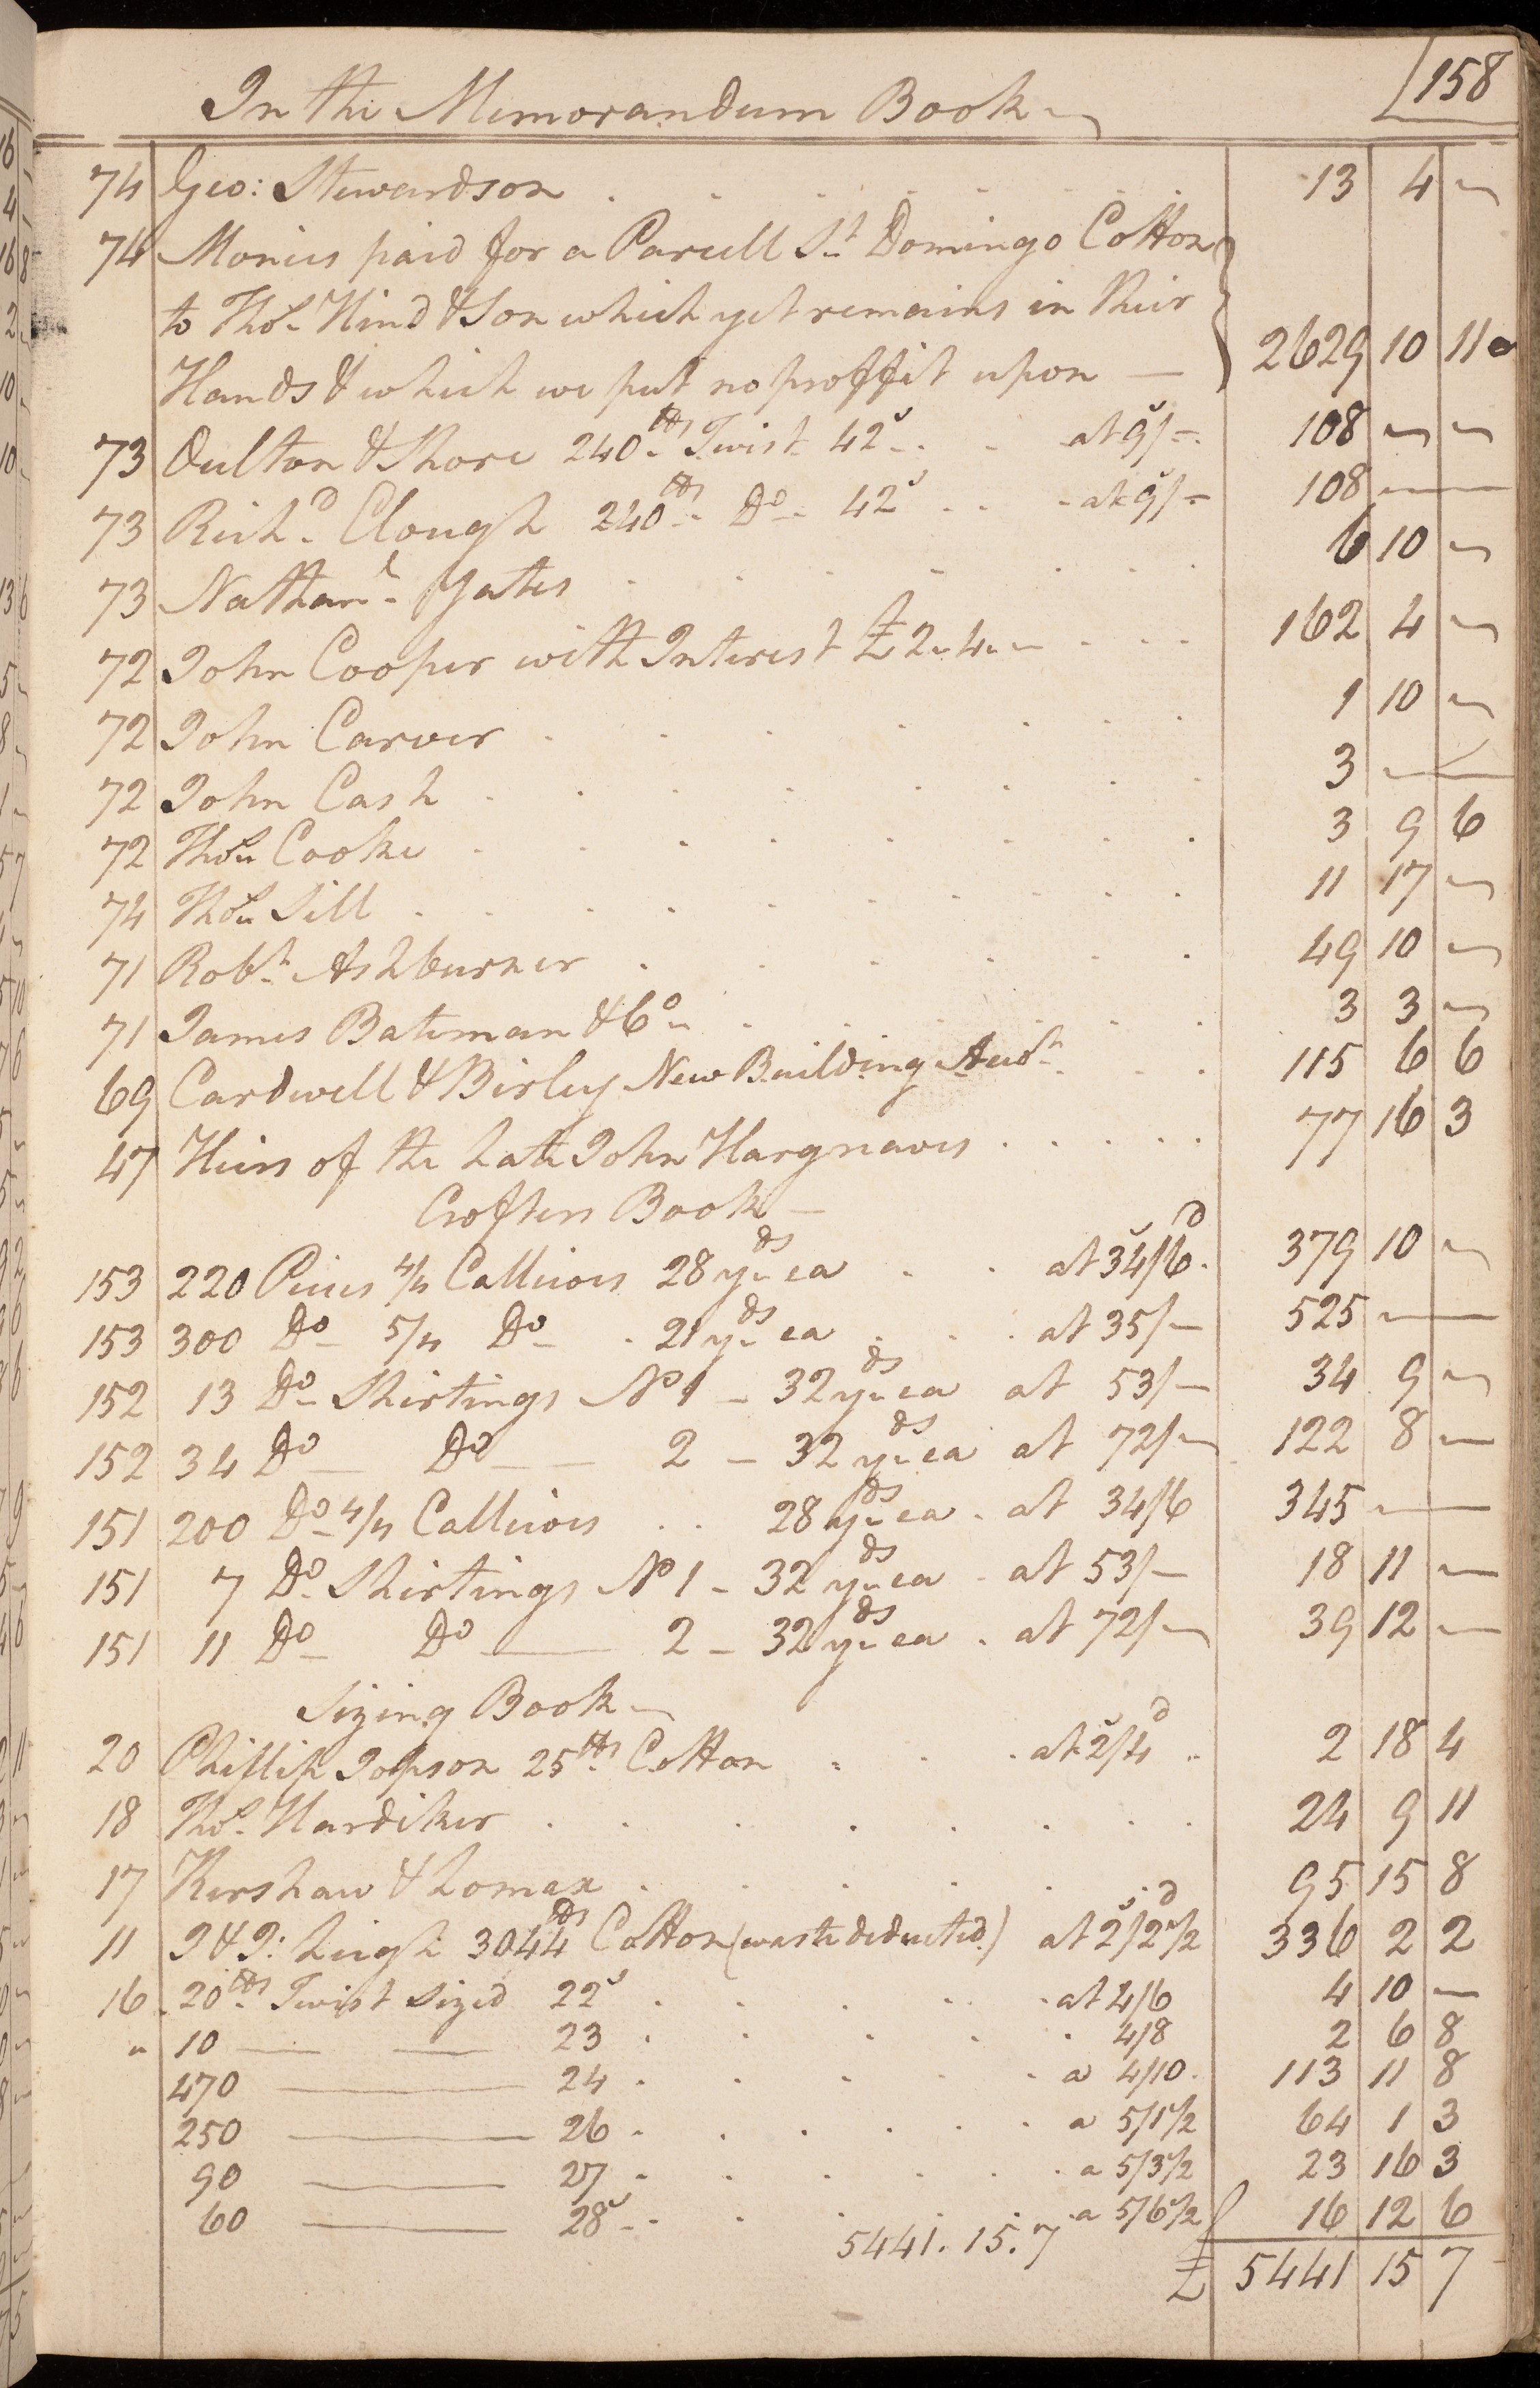 158
In the Memorandum Book
74 Geo: Stewardson 13 4 —
74 Monies paid for a Parcell St Domingo Cotton
to Thos Hind & Son which yet remains in their
Hands & which we put no proffit upon — 2629 10 11
73 Oulton & Shore 240 lbs Twist 42s at 9s/- 108 — —
73 Richd Clough 240 lbs Do 42s at 9s/- 108 — —
73 Nathanl Yates 6 10 —
72 John Cooper with Interest £2.4.- 162 4 —
72 John Carver 1 10 —
72 John Cash 3 — —
72 Thos Cooke 3 9 6
74 Thos Sill 11 17 —
71 Robt Ashburner 49 10 —
71 James Bateman & Co 3 3 —
69 Cardwell & Birley New Building Acct 115 6 6
47 Heirs of the Late John Hargreaves 77 16 3
Crofters Book —
153 220 Pieces 4/4 Callicoes 28 yds ea at 34s/6d 379 10 —
153 300 Do 5/4 Do 21 yds ea at 35/- 525 — —
152 13 Do Shirtings No 1 - 32 yds ea at 53/- 34 9 —
152 34 Do Do 2 - 32 yds ea at 72/- 122 8 —
151 200 Do 4/4 Callicoes 28 yds ea at 34/6 345 — —
151 7 Do Shirtings No 1 - 32 yds ea at 53/- 18 11 —
151 11 Do Do 2 - 32 yds ea at 72/- 39 12 —
Sizing Book
20 Phillip Jopson 25 lbs Cotton at 2s/4d 2 18 4
18 Thos Hardiker 24 9 11
17 Kershaw & Lomax 95 15 8
11 J & J: Leigh 3044 lbs Cotton (waste deducted) at 2s/2d 1/2 336 2 2
16 20 lbs Twist Sized 22s at 4/6 4 10 —
" 10 — — 23 4/8 2 6 8
470 — 24 a 4/10 113 11 8
250 — 26 a 5/1 1/2 64 1 3
90 — 27 a 5/3 1/2 23 16 3
60 — 28s a 5/6 1/2 16 12 6
5441. 15. 7 £ 5441 15 7